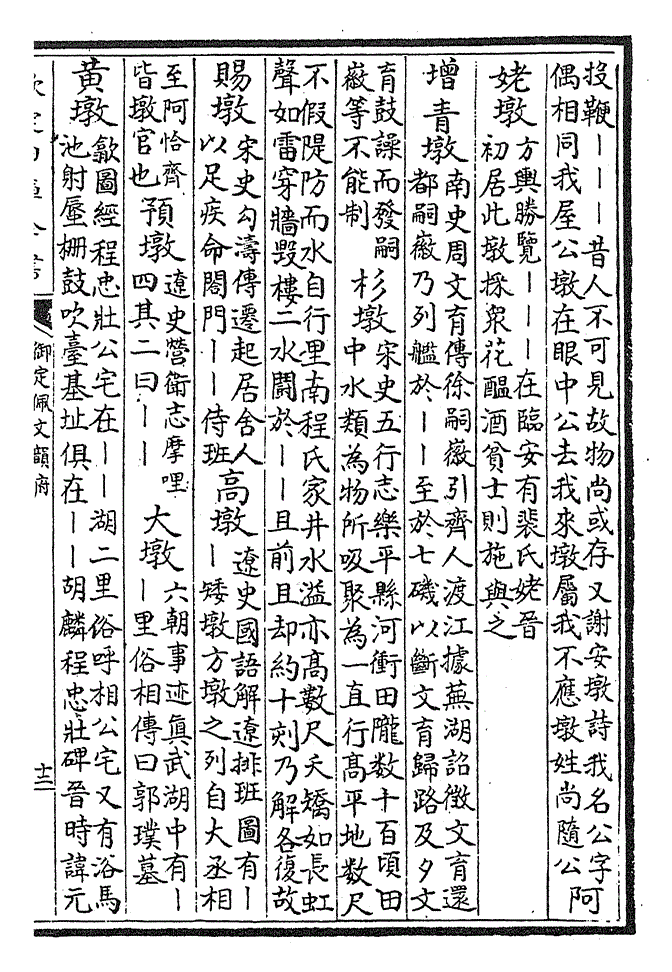 投鞭｜｜｜昔人不可見故物尚或存又謝安墩詩我名公字
偶相同我屋公墩在眼中公去我來墩屬我不應墩姓尚隨公
阿
姥墩
方輿勝覽｜｜｜在臨安有裴氏姥晉
初居此墩採衆花醖酒貧士則施與之
增青墩
南史周文育傳徐嗣徽引齊人渡江據蕪湖詔徵文育還
都嗣徽乃列艦於｜｜至於七磯以斷文育歸路及夕文
育鼓譟而發嗣
徽等不能制
杉墩
宋史五行志樂平縣河衝田隴数十百頃田
中水類為物所吸聚為一直行髙平地数尺
不假隄防而水自行里南程氏家井水溢亦髙數尺夭矯如長虹
聲如雷穿牆毀樓二水鬭於｜｜且前且却約十刻乃解各復故
賜墩
宋史勾濤傳遷起居舍人
以足疾命閤門｜｜侍班
高墩
遼史國語解遼排班圖有｜
｜矮墩方墩之列自大丞相
至阿恰齊
皆墩官也
預墩
遼史營衛志摩哩
四其二曰｜｜
大墩
六朝事迹真武湖中有｜
｜里俗相傳曰郭璞墓
黄墩
歙圖經程忠壯公宅在｜｜湖二里俗呼相公宅又有浴馬
池射蜃柵鼓吹臺基址俱在｜｜胡麟程忠壯碑晉時諱元
欽定四庫全書
御定佩文韻府